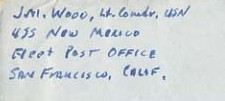 J.M. Wood, Lt. Comdr, USN
USS New Mexico
Fleet Post Office
San Francisco, Calif.